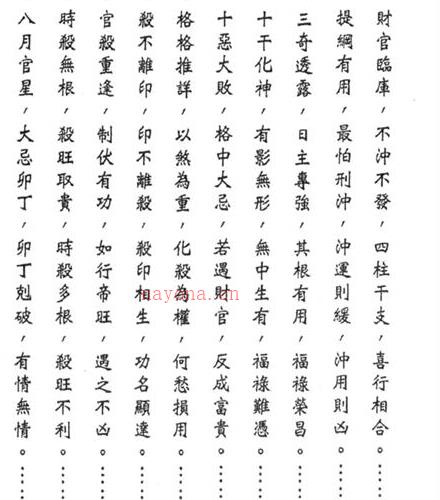 財官臨庫，不沖不發，四柱干支，喜行相合。……
提綱有用，最怕刑沖，沖運則緩，沖用則凶。……
三奇透露，日主專強，其根有用，福祿榮昌。……
十干化神，有影無形，無中生有，福祿難憑。……
十惡大敗，格中大忌，若遇財官，反成富貴。……
格格推詳，以煞為重，化殺為權，何愁損用。……
殺不離印，印不離殺，殺印相生，功名顯達。……
官殺重逢，制伏有功，如行帝旺，遇之不凶。……
時殺無根，殺旺取貴，時殺多根，殺旺不利。……
八月官星，大忌卯丁，卯丁剋破，有情無情。……
nayona.cn